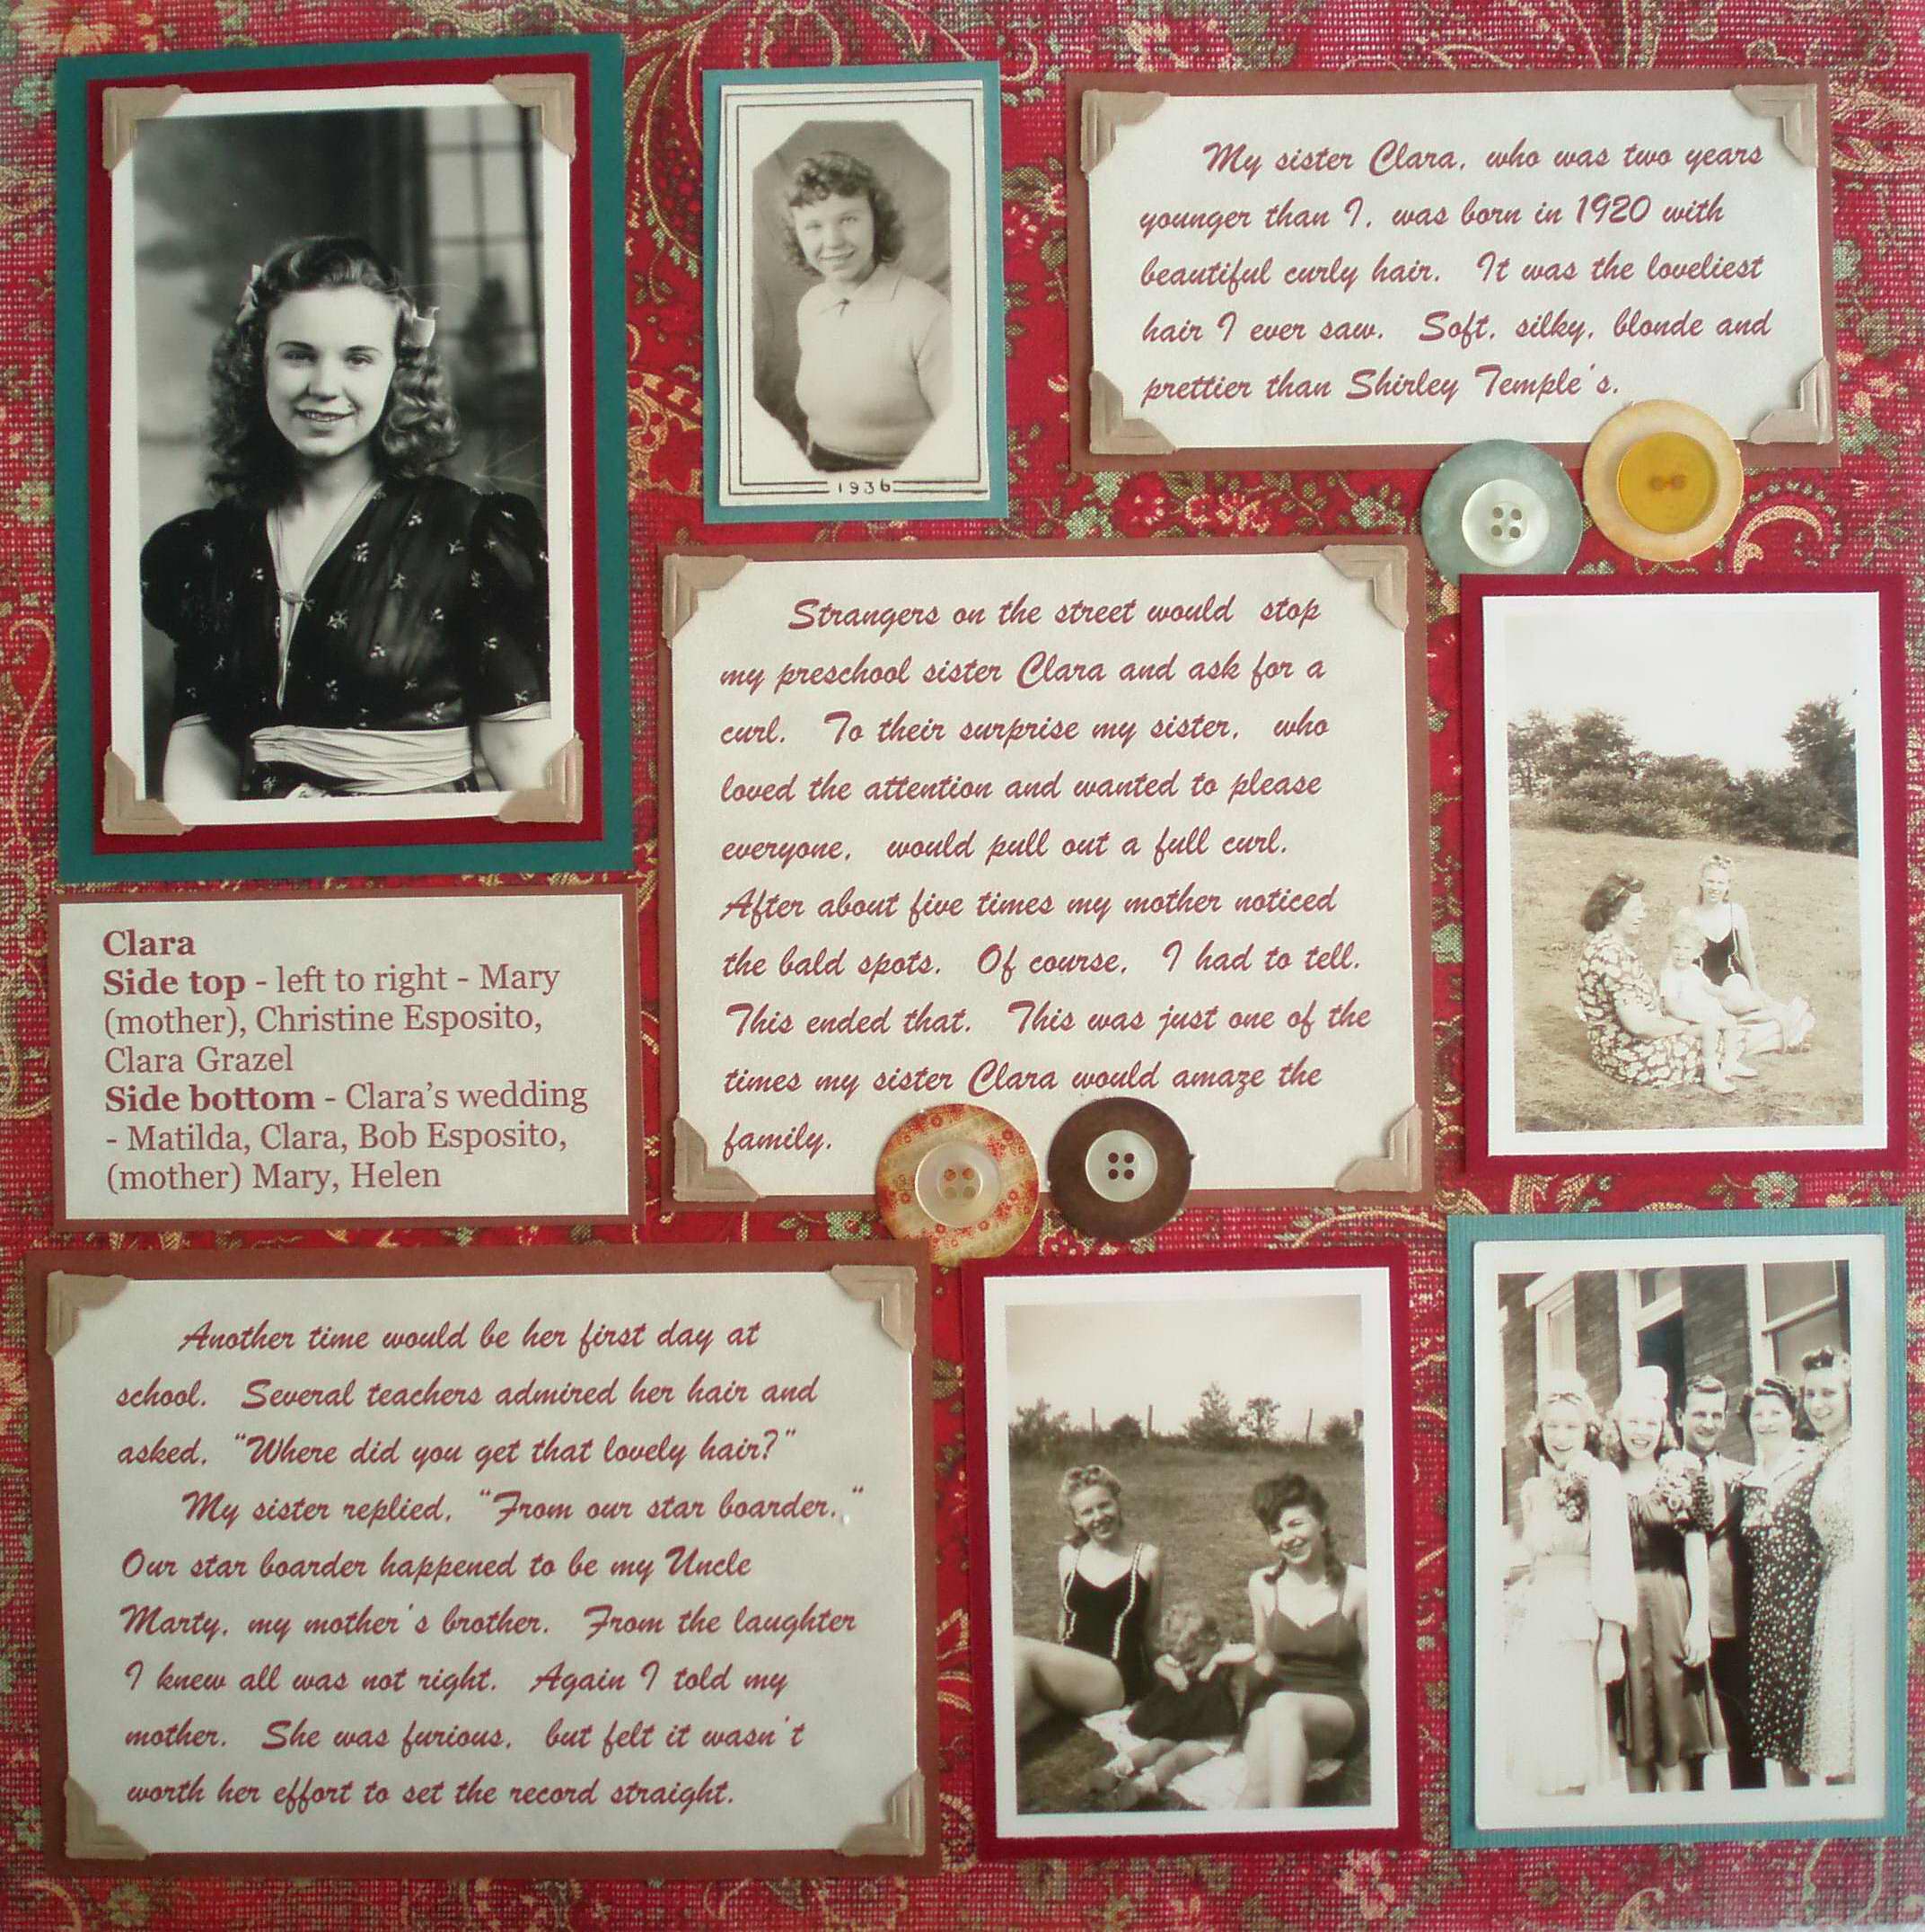 1936
My sister Clara, who was two years
younger than I, was born in 1920 with
beautiful curly hair. It was the loveliest
hair I ever saw. Soft, silky, blonde and
prettier than Shirley Temple's.
Strangers on the street would stop
my preschool sister Clara and ask for a
curl. To their surprise my sister, who
loved the attention and wanted to please
everyone, would pull out a full curl.
After about five times my mother noticed
the bald spots. Of course, I had to tell.
This ended that. This was just one of the
times my sister Clara would amaze the
family.
Clara
Side top - left to right - Mary
(mother), Christine Esposito,
Clara Grazel
Side bottom - Clara's wedding
- Matilda, Clara, Bob Esposito,
(mother) Mary, Helen
Another time would be her first day at
school. Several teachers admired her hair and
asked, "Where did you get that lovely hair?"
My sister replied, "From our star boarder."
Our star boarder happened to be my Uncle
Marty, my mother's brother. From the laughter
I knew all was not right. Again I told my
mother. She was furious, but felt it wasn't
worth her effort to set the record straight.